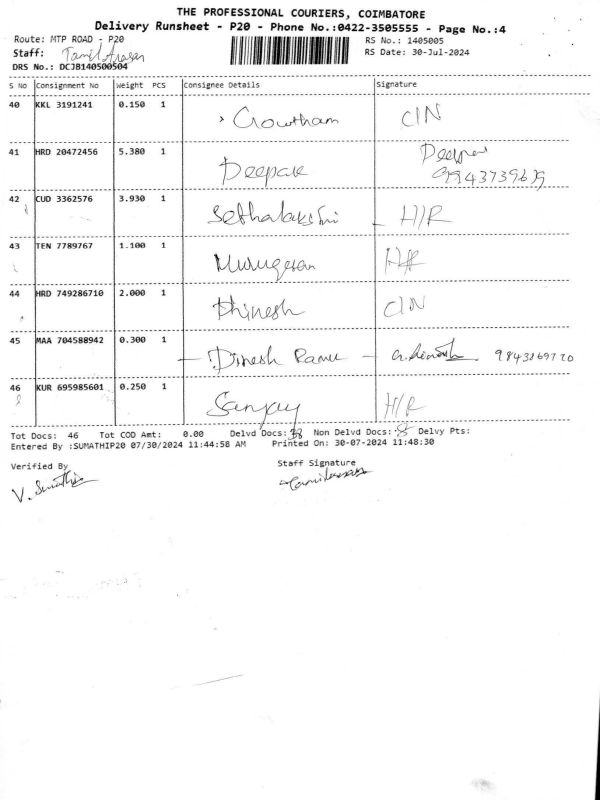 THE PROFESSIONAL COURIERS, COIMBATORE
Delivery Runsheet - P20 - Phone No.:0422-3505555 - Page No.:4
Route: MTP ROAD - P20 RS No.: 1405005
Staff: Tamil Arasan RS Date: 30-Jul-2024
DRS No.: DCJB140500504
S No Consignment No Weight PCS Consignee Details Signature
40 KKL 3191241 0.150 1 Gowtham CIN
41 HRD 20472456 5.380 1 Deepak Deepak
42 CUD 3362576 3.930 1 Sethalakshmi H/R
43 TEN 7789767 1.100 1 Murugesan H/R
44 HRD 749286710 2.000 1 Dhinesh CIN
45 MAA 704588942 0.300 1 Dinesh Ramu
46 KUR 695985601 0.250 1 Sanjay H/R
Tot Docs: 46 Tot COD Amt: 0.00 Delvd Docs: 38 Non Delvd Docs: Delvy Pts:
Entered By :SUMATHIP20 07/30/2024 11:44:58 AM Printed On: 30-07-2024 11:48:30
Verified By Staff Signature
V. Sumathi